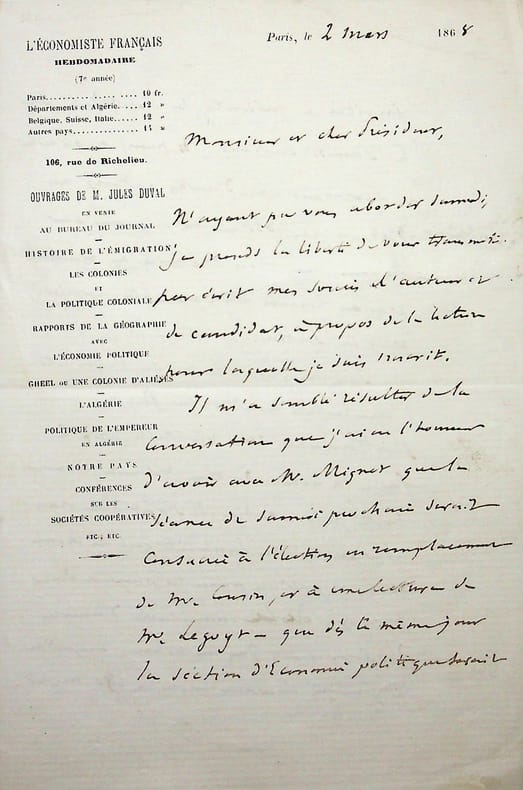 L'ÉCONOMISTE FRANÇAIS
HEBDOMADAIRE
(7e année)
Paris.................. 10 fr.
Départements et Algérie.... 12 »
Belgique, Suisse, Italie...... 12 »
Autres pays............... 15 »
106, rue de Richelieu.
OUVRAGES DE M. JULES DUVAL
EN VENTE
AU BUREAU DU JOURNAL
HISTOIRE DE L'ÉMIGRATION
LES COLONIES
ET
LA POLITIQUE COLONIALE
RAPPORTS DE LA GÉOGRAPHIE
AVEC
L'ÉCONOMIE POLITIQUE
GHEEL OU UNE COLONIE D'ALIÉNÉS
L'ALGÉRIE
POLITIQUE DE L'EMPEREUR
EN ALGÉRIE
NOTRE PAYS
CONFÉRENCES
SUR LES
SOCIÉTÉS COOPÉRATIVES
ETC.; ETC.
Paris, le 2 mars 1868
Monsieur et cher Président,
N'ayant pu vous aborder samedi,
je prends la liberté de vous transmettre
par écrit mes soucis d'auteur et
de candidat, à propos de la lecture
pour laquelle je suis inscrit.
Il m'a semblé résulter de la
conversation que j'ai eu l'honneur
d'avoir avec Mr. Mignet que la
séance de samedi prochain serait
consacrée à l'élection en remplacement
de Mr. Cousin, et à une lecture de
Mr. Legoyt – que dès le même jour
la section d'Economie politique serait